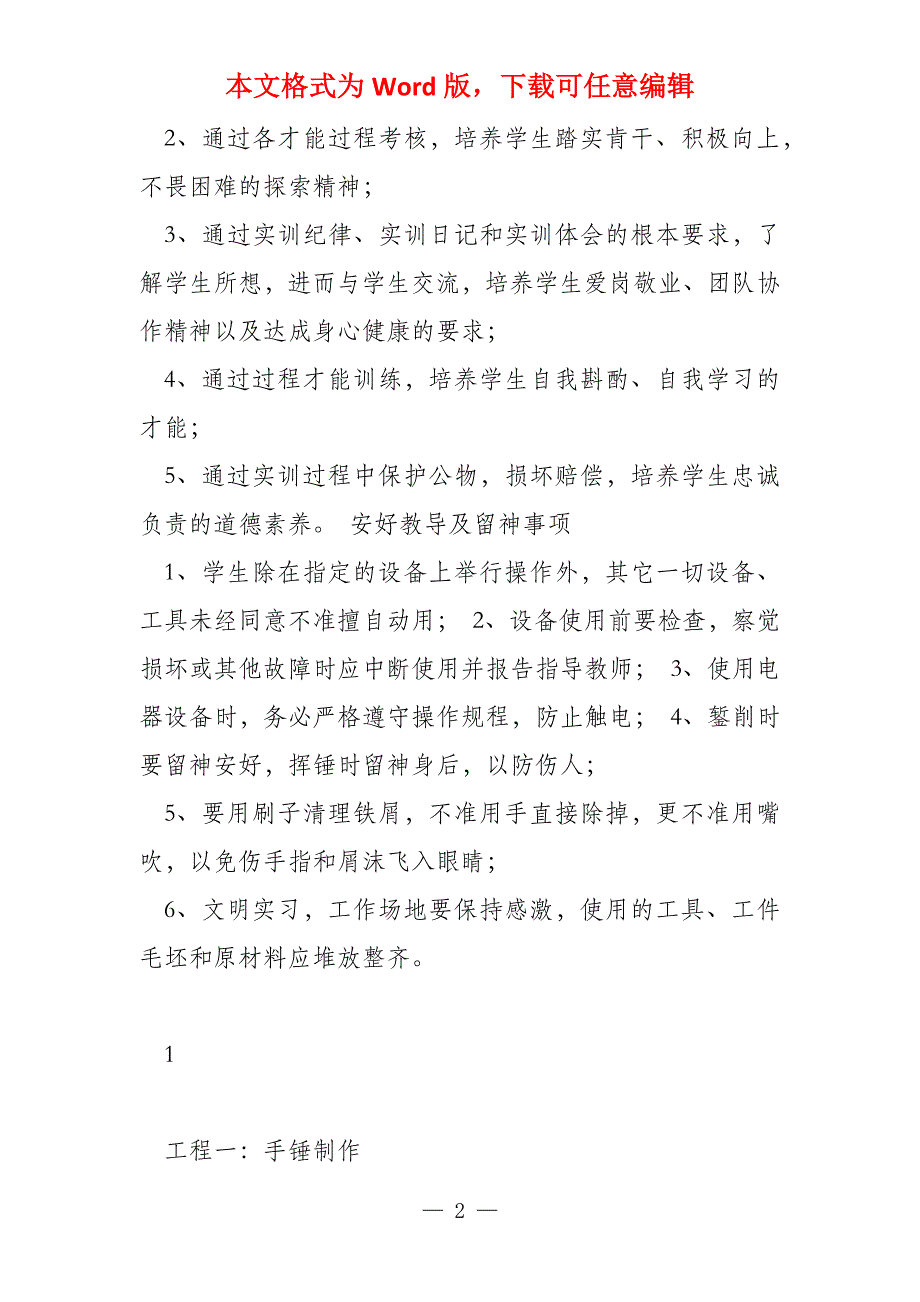 本文格式为 Word 版，下载可任意编辑
2、通过各才能过程考核，培养学生踏实肯干、积极向上，
不畏困难的探索精神；
3、通过实训纪律、实训日记和实训体会的根本要求，了
解学生所想，进而与学生交流，培养学生爱岗敬业、团队协
作精神以及达成身心健康的要求；
4、通过过程才能训练，培养学生自我斟酌、自我学习的
才能；
5、通过实训过程中保护公物，损坏赔偿，培养学生忠诚
负责的道德素养。 安好教导及留神事项
1、学生除在指定的设备上举行操作外，其它一切设备、
工具未经同意不准擅自动用； 2、设备使用前要检查，察觉
损坏或其他故障时应中断使用并报告指导教师； 3、使用电
器设备时，务必严格遵守操作规程，防止触电； 4、錾削时
要留神安好，挥锤时留神身后，以防伤人；
5、要用刷子清理铁屑，不准用手直接除掉，更不准用嘴
吹，以免伤手指和屑沫飞入眼睛；
6、文明实习，工作场地要保持感激，使用的工具、工件
毛坯和原材料应堆放整齐。
1
工程一：手锤制作
— 2 —